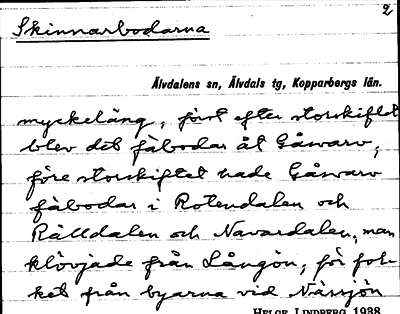 2
Skinnarbodarna
Älvdalens sn, Älvdals tg, Kopparbergs län.
myckeläng, först efter storskiftet
blev det fäbodar åt Gåsvarv,
före storskiftet hade Gåsvarv
fäbodar i Rotendalen och
Rälldalen och Navardalen, man
klövjade från Långön, för fol-
ket från byarna vid Nässjön
HELGE LINDBERG 1938